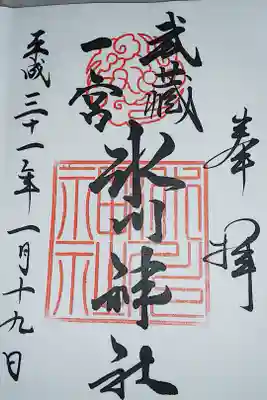 奉拝
武蔵一宮
氷川神社
平成三十一年一月十九日